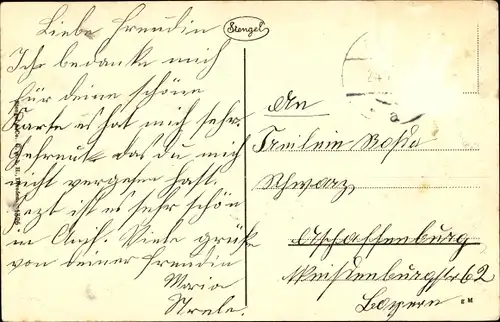 Liebe Freundin
Ich bedanke mich
für deine schöne
Karte es hat mich sehr
gefreut das du mich
nicht vergesen hast.
jezt ist es sehr schön
in Viele grüße
von deiner Freundin
Maria
Strele.
Stengel
24.
a
An
Freilein Rosa
Schwarz
Aschaffenburg
62
Bayern
E M